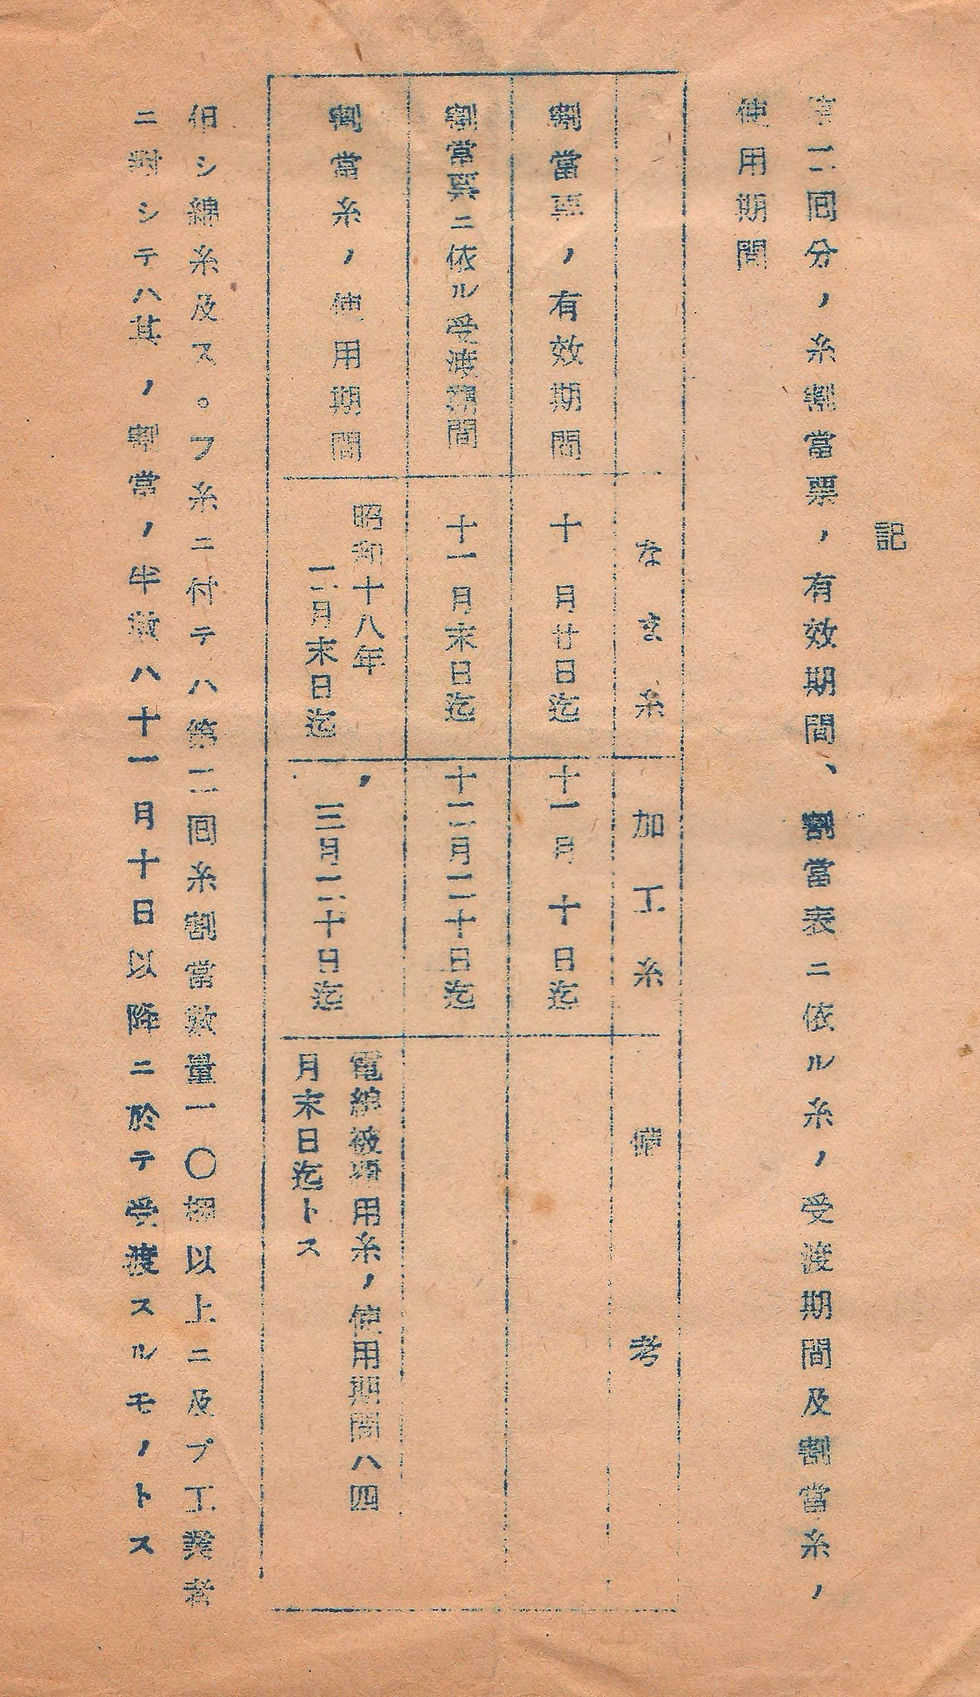 記
第二回分ノ糸割當票ノ有效期間、割當表ニ依ル糸ノ受渡期間及割當糸ノ
使用期間
なま糸
加工糸
備考
割當票ノ有效期間
十月廿日迄
十一月十日迄
割當票ニ依ル受渡期間
十一月末日迄
十二月二十日迄
割當糸ノ使用期間
昭和十八年
二月末日迄
〃三月二十日迄
電線被覆用糸ノ使用期間ハ四
月末日迄トス
但シ綿糸及ス。フ糸ニ付テハ第二回糸割當數量一〇梱以上ニ及ブ工業者
ニ對シテハ其ノ割當ノ半數ハ十一月十日以降ニ於テ受渡スルモノトス